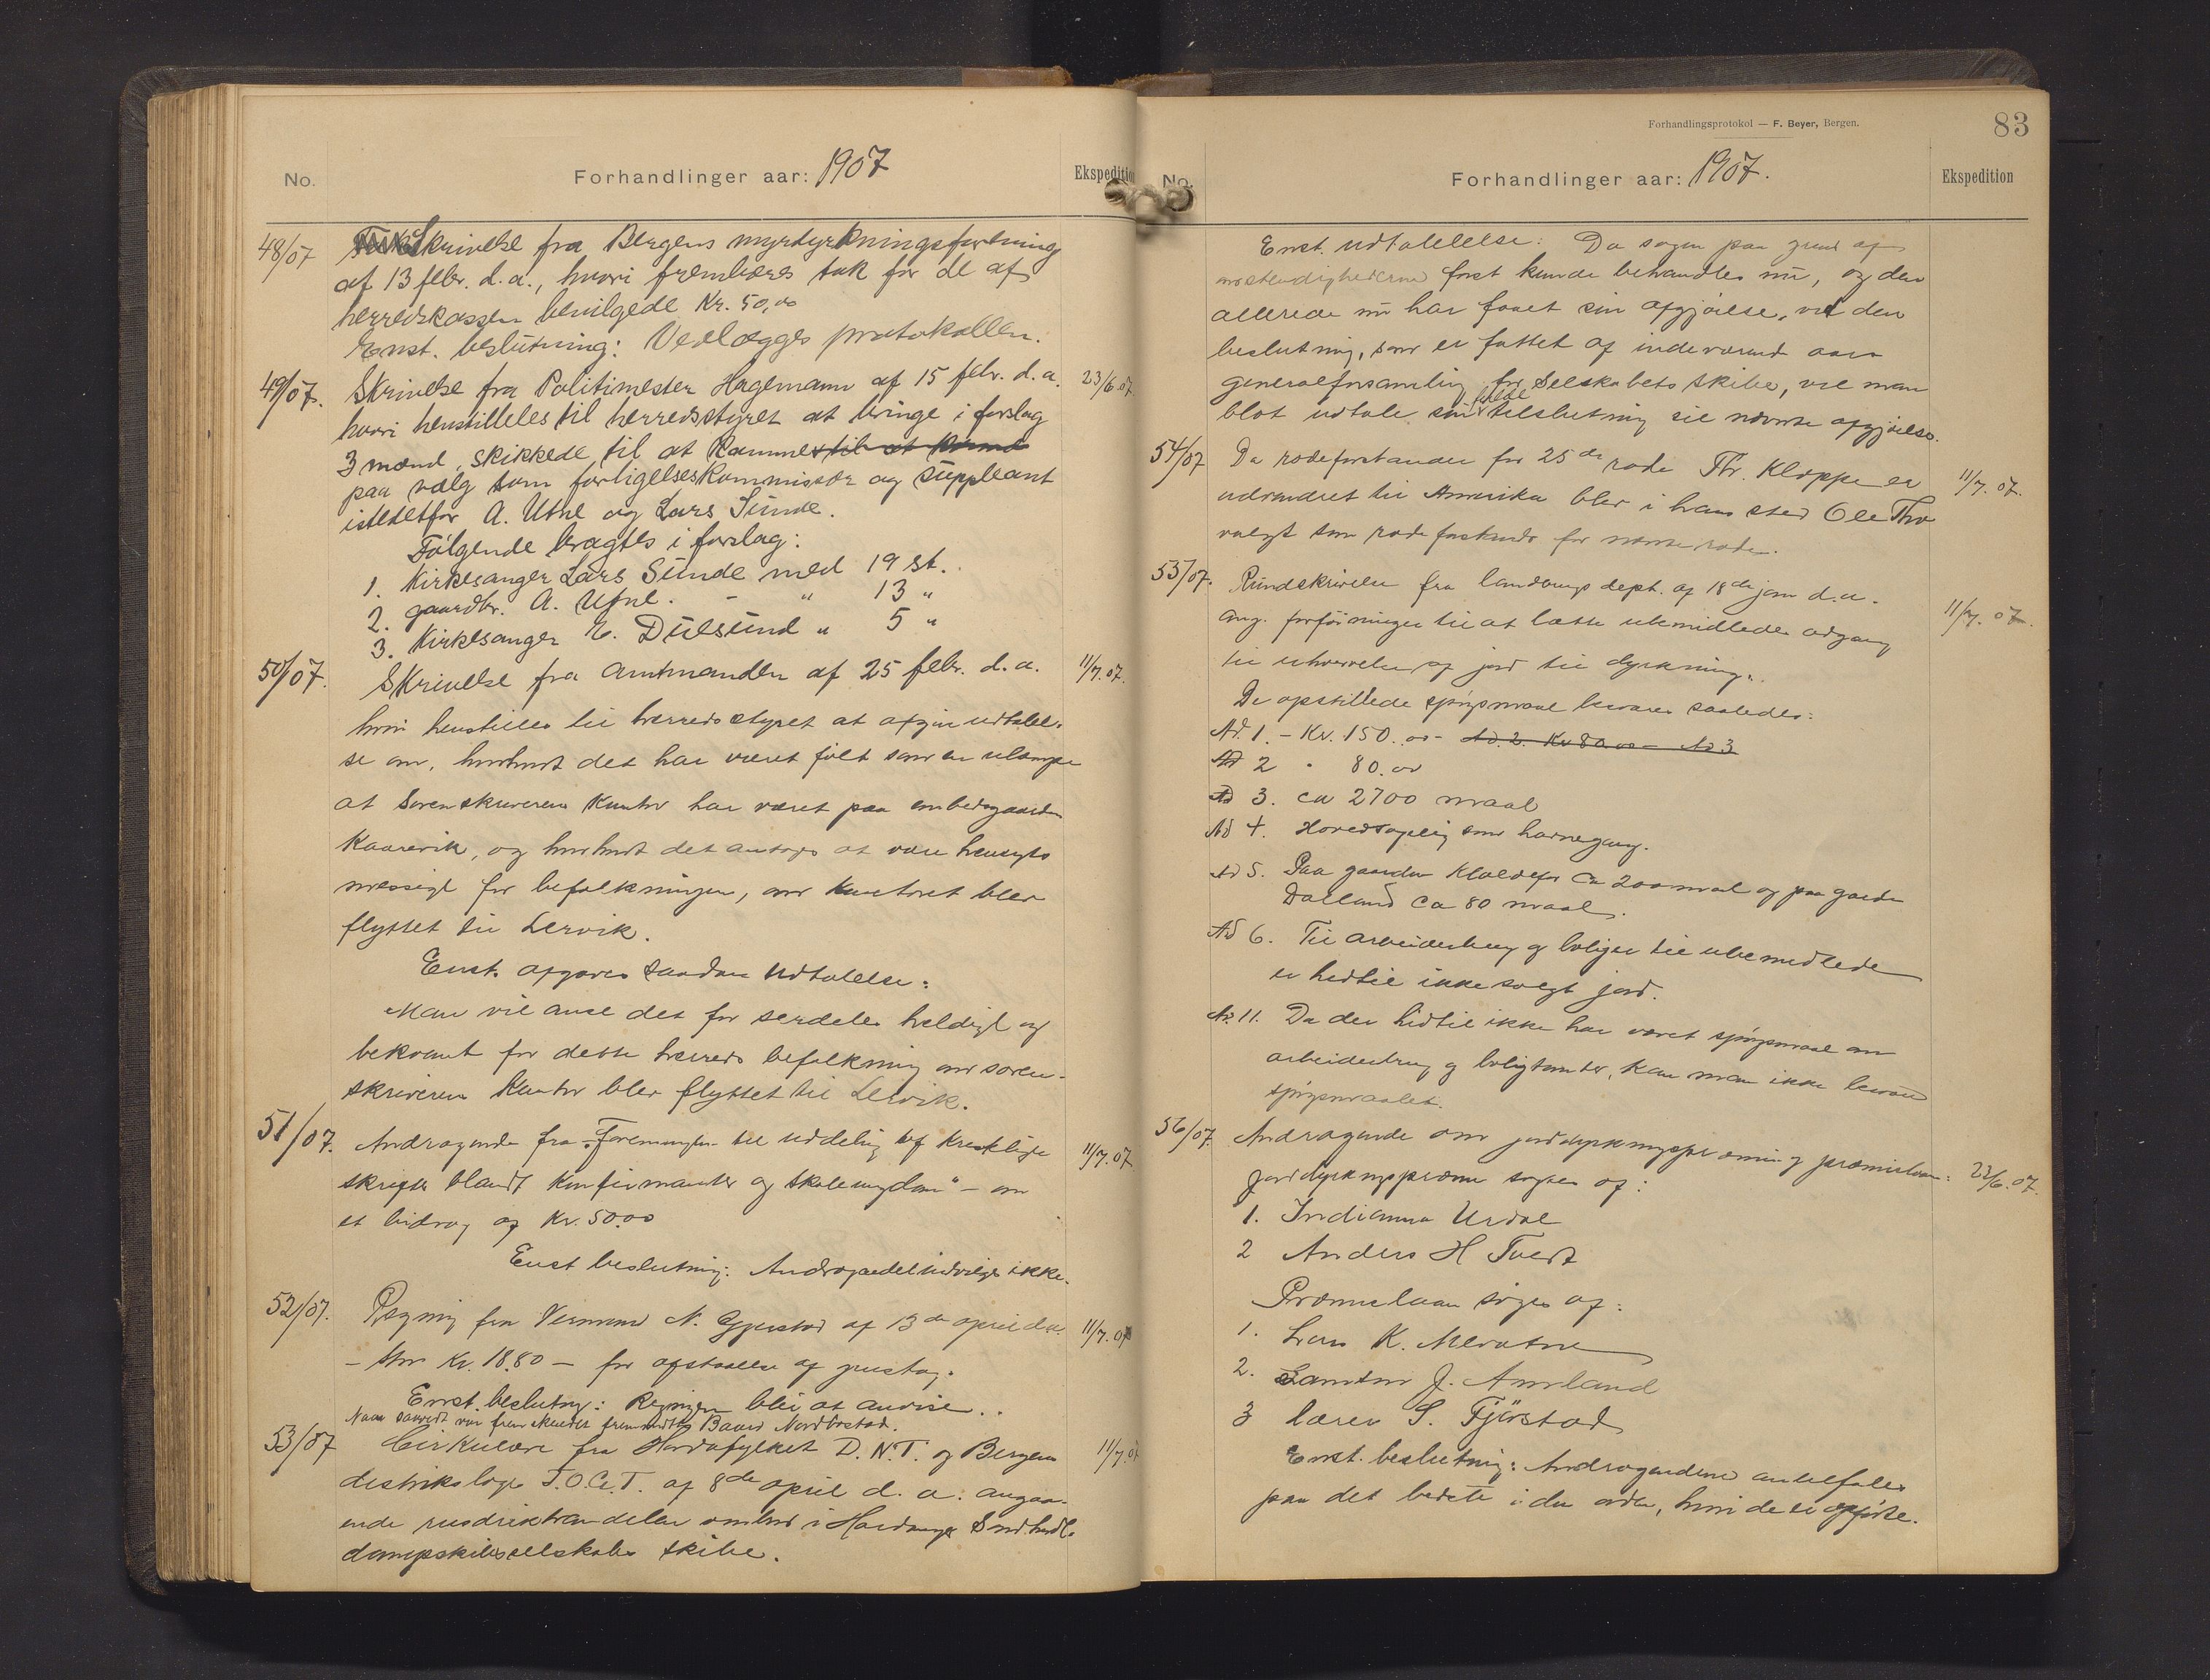 No.
Forhandlinger aar: 1907
Ekspedition
48/07 Skrivelse fra Bergens myrdyrkningsforening
af 13 febr. d.a., hvori frembæres tak for de af
herredskassen bevilgede Kr. 50,00
Enst. beslutning: Vedlægges protokollen.
49/07. Skrivelse fra Politimester Hagemann af 15 febr. d.a. 23/6.07.
hvori henstilles til herredsstyret at bringe i forslag
3 mænd, skikkede til at komme til at komme
paa valg som forligelseskommissær og suppleant
istedetfor A. Utne og Lars Sunde.
Følgende bragtes i forslag:
1. Kirkesanger Lars Sunde med 19 st.
2. gaardbr. A. Utne. - " 13 "
3. Kirkesanger E. Duesund " 5 "
50/07. Skrivelse fra Amtmanden af 25 febr. d.a. 11/7.07.
hvori henstilles til herredsstyret at afgive udtalel-
se om, hvorvidt det har været følt som en ulempe
at Sorenskriverens Kontor har været paa embedsgaarden
Kaarevik, og hvorvidt det antages at være hensigts
mæssigt for befolkningen, om kontoret blev
flyttet til Lervik.
Enst. afgaves saadan udtalelse:
Man vil anse det for særdeles heldigt og
bekvemt for dette herreds befolkning om soren-
skriverens Kontor blev flyttet til Lervik.
51/07. Andragende fra "Foreningen til uddeling af Kristelige 11/7.07
skrifter blandt Konfirmanter og skoleungdom" - om
et bidrag af Kr. 50.00
Enst beslutning: Andragendet indvilges ikke.
52/07. Regning fra Vermund N. Gjerstad af 13de april d.a. 11/7.07
- stor Kr. 18.80 - for afstaaelse af grustag.
Enst. beslutng: Regningen blir at anvise.
53/07 Cirkulære fra Hordafylket D.N.T. og Bergens 11/7.07
distriktsloge I.O.G.T. af 8de april d.a. angaa-
ende rusdrikhandelen ombord i Hardanger Søndhordl.
dampskibsselskabs skibe.
Forhandlingsprotokol — F. Beyer, Bergen.
83
No.
Forhandlinger aar: 1907.
Ekspedition
Enst. udtalelse: Da sagen paa grund af
omstændighederne først kunde behandles nu, og den
allerede nu har faaet sin afgjørelse, ved den
beslutning, som er fattet af indeværende aars
generalforsamling for Selskabets skibe, vil man
blot udtale sin fulde tilslutning til nævnte afgjørelse.
54/07 Da rodeforstander for 25de rode Thr. Kloppe er 11/7.07.
udvandret til Amerika blev i hans sted Ole Tho
valgt som rodeforstander for nævnte rode.
55/07. Rundskrivelse fra landbrugsdept. af 18de jan d.a. 11/7.07.
ang. forføininger til at lette ubemidledes adgang
til erhvervelse af jord til dyrkning.
De opstillede spørgsmaal besvares saaledes:
Ad. 1. - Kr. 150.00 - Ad. 2. Kr 80.00 - Ad 3
Ad 2 " 80.00
Ad 3. ca 2700 maal
Ad 4. Hovedsagelig som havnegang.
Ad 5. Paa gaarden Kloldefer ca 200 maal og paa gaarden
Dalland ca 80 maal.
Ad 6. Til arbeiderbrug og boliger til ubemidlede
er hidtil ikke solgt jord.
Ad. 11. Da der hidtil ikke har været spørgsmaal om
arbeiderbrug og boligtomter, kan man ikke besvare
spørgsmaalet.
56/07. Andragende om jorddyrkningspræmie og præmielaan: 22/6.07.
Jorddyrkningspræmie søges af:
1. Indianna Urdal
2 Anders H Tvedt
Præmielaan søges af:
1. Lars K. Mevatne
2. J. Aurland
3 lærer S. Fjørstad
Enst. beslutning: Andragenderne anbefales
paa det bedste i den orden, hvori de er opførte.